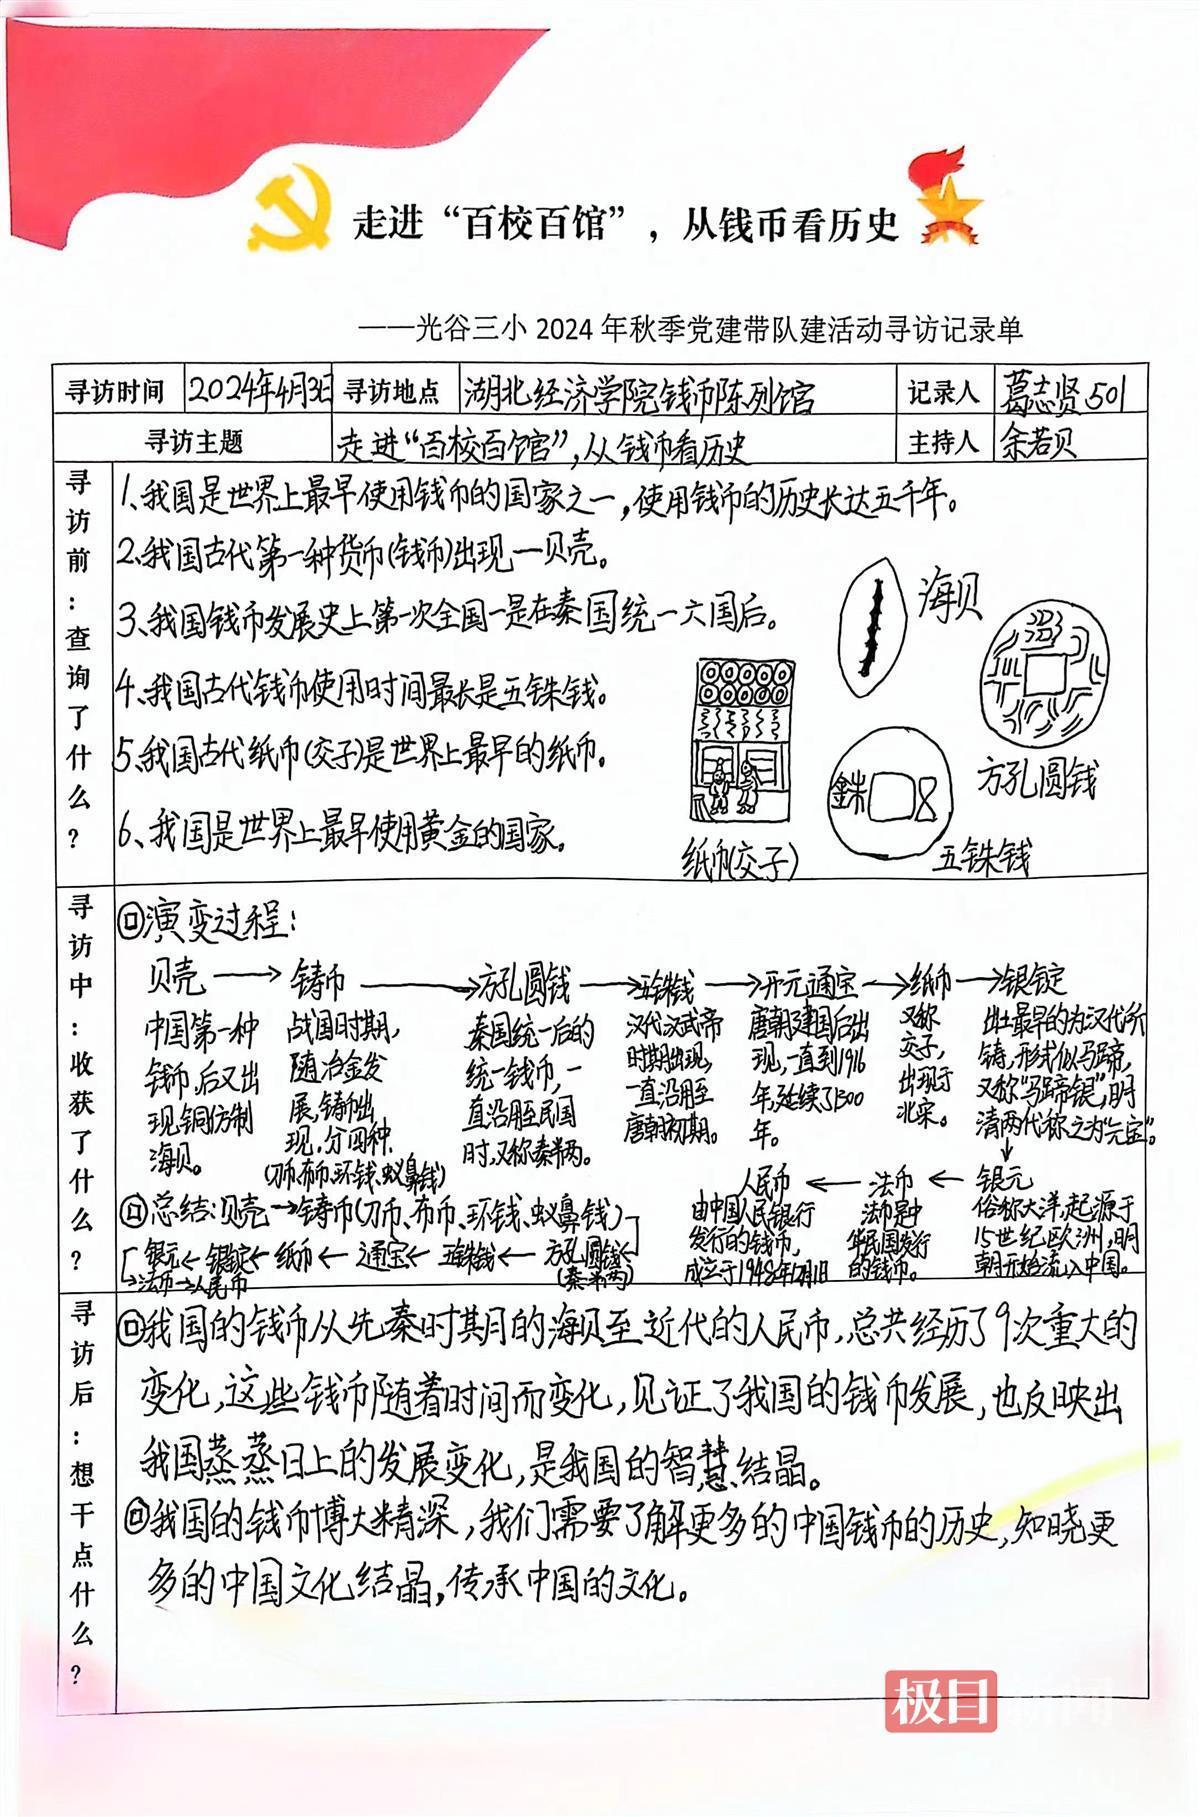 走进“百校百馆”，从钱币看历史
——光谷三小 2024 年秋季党建带队建活动寻访记录单
寻访时间 2024年4月3日 寻访地点 湖北经济学院钱币陈列馆 记录人 葛志贤501
寻访主题 走进“百校百馆”，从钱币看历史 主持人 余若贝
寻访前：查询了什么？
1、我国是世界上最早使用钱币的国家之一，使用钱币的历史长达五千年。
2、我国古代第一种货币(钱币)出现—贝壳。
3、我国钱币发展史上第一次全国一是在秦国统一六国后。
4、我国古代钱币使用时间最长是五铢钱。
5、我国古代纸币(交子)是世界上最早的纸币。
6、我国是世界上最早使用黄金的国家。
海贝
方孔圆钱
銖
五铢钱
纸币(交子)
寻访中：收获了什么？
演变过程：
贝壳→铸币→方孔圆钱→五铢钱→开元通宝→纸币→银锭
中国第一种
钱币，后又出
现铜仿制
海贝。
战国时期，
随冶金发
展，铸币出
现，分四种
(刀币、布币、环钱、蚁鼻钱)
秦国统一后的
统一钱币，一
直沿用至民国
时，又称秦半两。
汉代汉武帝
时期出现，
一直沿用至
唐朝初期。
唐朝建国后出
现，一直到1916
年，延续了1300
年。
又称
交子，
出现于
北宋。
出土最早的为汉代所
铸，形式似马蹄，
又称“马蹄银”，明
清两代称之为“元宝”。
人民币←法币←银元
由中国人民银行
发行的钱币，
成立于1948年12月1日
法币是中
华民国发行
的钱币。
俗称大洋，起源于
15世纪欧洲，明
朝开始流入中国。
总结：贝壳→铸币(刀币、布币、环钱、蚁鼻钱)
银元←银锭←纸币←通宝←五铢钱←方孔圆钱
(秦半两)
→法币→人民币
寻访后：想干点什么？
我国的钱币从先秦时期的海贝至近代的人民币，总共经历了9次重大的
变化，这些钱币随着时间而变化，见证了我国的钱币发展，也反映出
我国蒸蒸日上的发展变化，是我国的智慧结晶。
我国的钱币博大精深，我们需要了解更多的中国钱币的历史，知晓更
多的中国文化结晶，传承中国的文化。
极目新闻